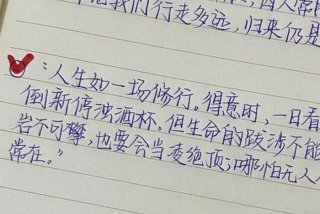 们行走多远，归来仍是
：人生如一场修行。得意时，一日看
倒新停浊酒杯。但生命的跋涉不能
岩不可攀，也要会当凌绝顶；哪怕无人
常在。”